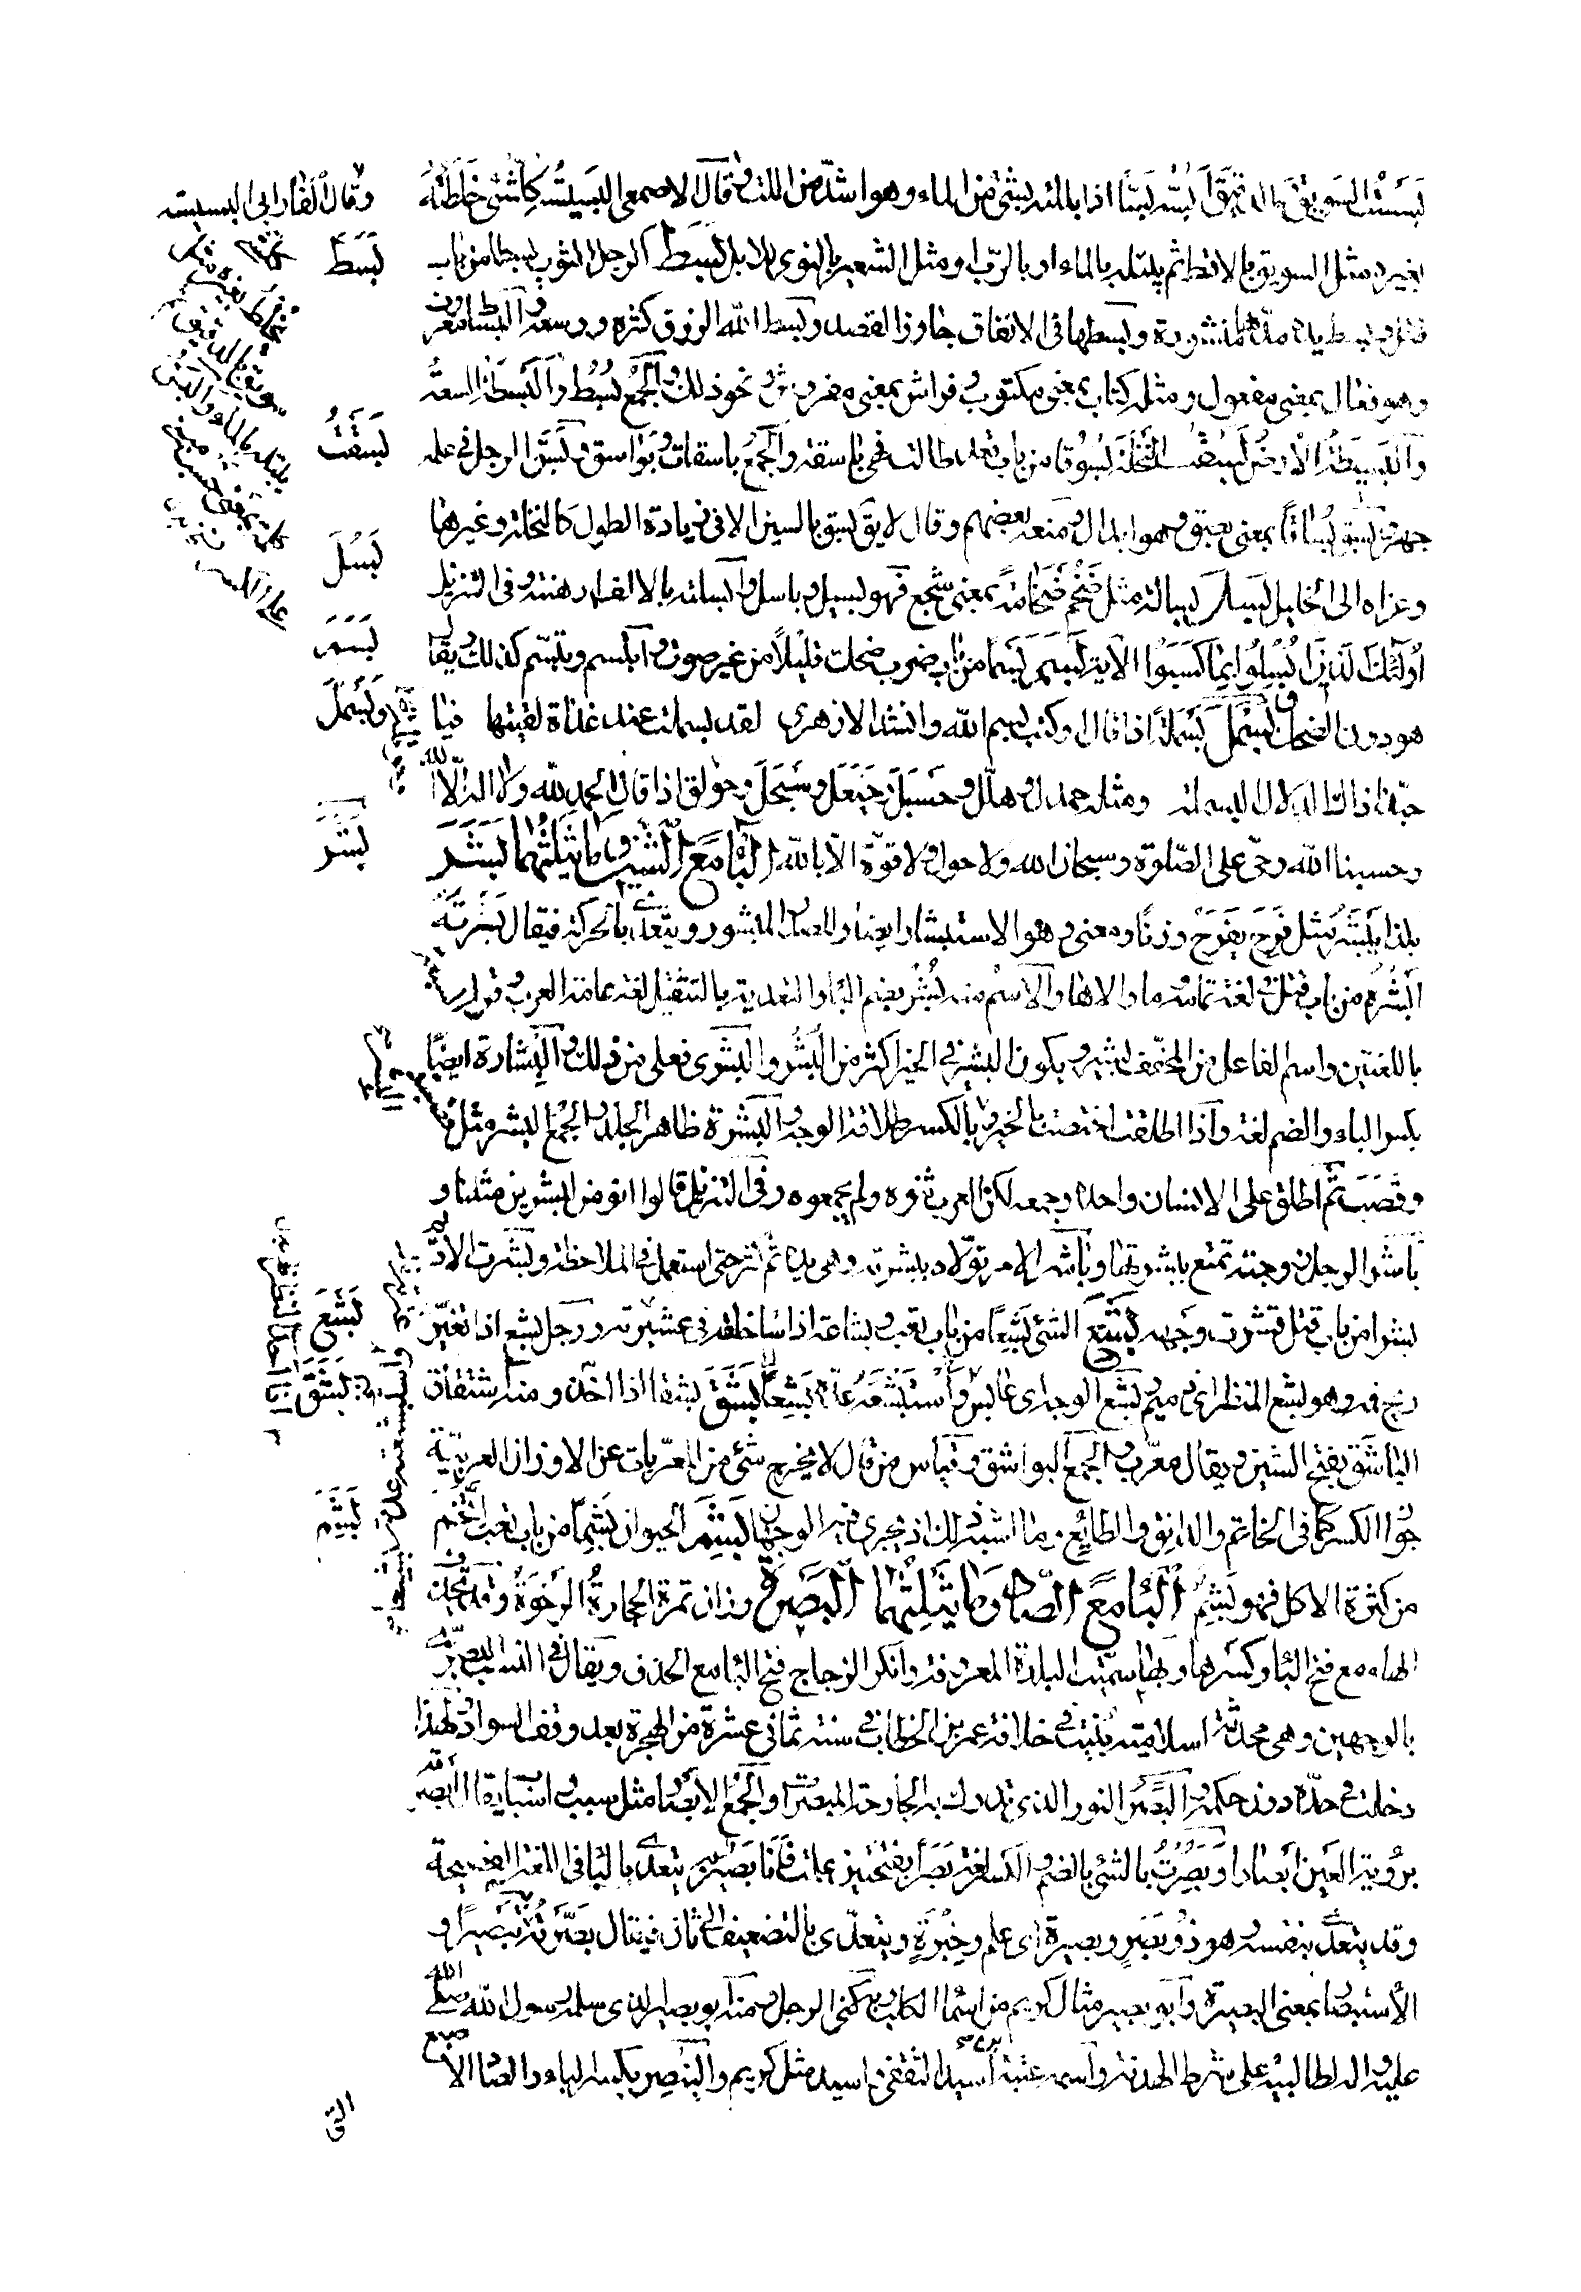 بسست السويق والدقيق ابسه بسا اذا بللته بشئ من الماء وهو اشد من اللت وقال الاصمعى البسيسة كل شئ خلطته
بغيره مثل السويق بالاقط ثم يبلله بالماء او بالرب او مثل الشعير بالنوى للابل بسط الرجل الثوب بسطا من باب
قتل وبسط يده مدها منشورة وبسطها فى الانفاق جاوز القصد وبسط الله الرزق كثره ووسعه والبساط معروف
وهو فعال بمعنى مفعول ومثله كتاب بمعنى مكتوب وفراش بمعنى مفروش ونحو ذلك والجمع بسط والبسطة السعة
والبسيطة الارض بسقت النخلة بسوقا من باب قعد طالت فهى باسقة والجمع باسقات وبواسق وبسق الرجل فى علمه
بسق بساقا بمعنى بصق وهو ابدال ومنعه بعضهم وقال لا يق بسق بالسين الا فى زيادة الطول كالنخلة وغيرها
وعزاه الى الخليل بسل بسالة مثل ضخم ضخامة بمعنى شجع فهو بسيل وباسل وابسلته بالالف رهنته وفى التنزيل
اولئك الذين ابسلوا بما كسبوا الاية بسم بسما من باب ضرب ضحك قليلا من غير صوت وابتسم وتبسم كذلك ويقال
هو دون الضحك بسمل بسملة اذا قال او كتب بسم الله وانشد الازهرى لقد بسملت عند غداة لقيتها فيا
حبذا ذاك الدلال المبسمل ومثله حمدل وهلل وحسبل وحيعل وسبحل وحولق اذا قال الحمد لله ولا اله الا الله
وحسبنا الله وحى على الصلوة وسبحان الله ولا حول ولا قوة الا بالله الباء مع الشين وما يثلثهما بشر
بكذا يبشر مثل فرح يفرح وزنا ومعنى وهو الاستبشار ايضا والمصدر البشور ويتعدى بالحركة فيقال بشرته
ابشره من باب قتل فى لغة تهامة وما والاها والاسم منه بشر بضم الباء والتعدية بالتثقيل لغة عامة العرب وقرا
باللغتين واسم الفاعل من المخفف بشير ويكون البشير فى الخير اكثر من الشر والبشرى فعلى من ذلك والبشارة ايضا
بكسر الباء والضم لغة واذا اطلقت اختصت بالخير وبالكسر طلاقة الوجه والبشرة ظاهر الجلد والجمع البشر مثل
وقصب ثم اطلق على الانسان واحده وجمعه لكن العرب ثنوه ولم يجمعوه وفى التنزيل قالوا انؤمن لبشرين مثلنا و
باشر الرجل زوجته تمتع ببشرتها وباشر الامر تولاه ببشرته وهى يده ثم كثر حتى استعمل فى الملاحظة وبشرت الاديم
بشرا من باب قتل قشرت وجهه بشع الشئ بشعا من باب تعب وبشاعة اذا ساء خلقه فى عشيرته ورجل بشع اذا تغير
ريح فمه وهو بشع المنظر اى دميم وبشع الوجه اى عابس واستبشعته عددته بشعا بشق بشقا اذا اخذ ومنه اشتقاق
الباشق بفتح الشين ويقال معرب والجمع البواشق وقياس من قال لا يخرج شئ من المعربات عن الاوزان العربية
جواز الكسر كما فى الخاتم والدانق والطابع وما اشبه ذلك اذ يجرى فيه الوجهان بشم الحيوان بشما من باب تعب اتخم
من كثرة الاكل فهو بشم الباء مع الصاد وما يثلثهما البصرة وزان تمرة الحجارة الرخوة وقد تحذف
الهاء مع فتح الباء وكسرها وبها سميت البلدة المعروفة وانكر الزجاج فتح الباء مع الحذف ويقال فى النسبة بصرى
بالوجهين وهى محدثة اسلامية بنيت فى خلافة عمر بن الخطاب فى سنة ثمانى عشرة من الهجرة بعد وقف السواد ولهذا
دخلت فى حده دون حكمه والبصر النور الذى تدرك به الجارحة المبصرات والجمع الابصار مثل سبب واسباب يقال ابصرته
برؤية العين ابصارا وبصرت بالشئ بالضم والكسر لغة بصرا بفتحتين علمت فانا بصير به يتعدى بالباء فى اللغة الفصيحة
وقد يتعدى بنفسه وهو ذو بصر وبصيرة اى علم وخبرة ويتعدى بالتضعيف الى ثان فيقال بصرته به تبصيرا و
الاستبصار بمعنى البصيرة وابو بصير مثال كريم من اسماء الكلب وبه كنى الرجل ومنه ابو بصير الذى سلمه رسول الله صلى الله
عليه واله لطالبيه على شرط الهدنة واسمه عتبة بن اسيد الثقفى واسيد مثل كريم والبنصر بكسر الباء والصاد الاصبع
التى
وقال الفارابى البسيسة
بسط
بسقت
بسل
بسم
وبسمل
بشر
بشع
بشق
بشم